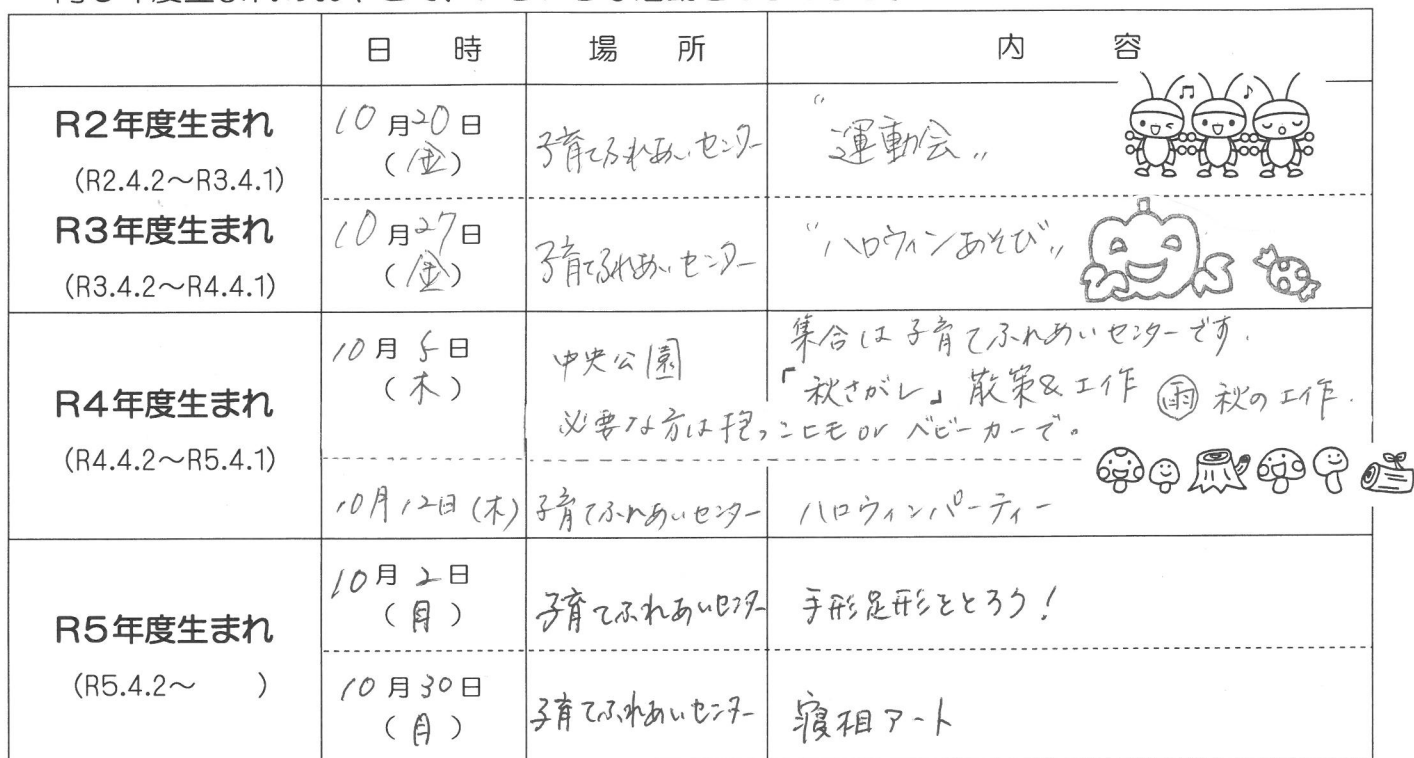 日 時 場 所 内 容
R2年度生まれ
(R2.4.2～R3.4.1)
10月20日
(金)
子育てふれあいセンター
"運動会"
R3年度生まれ
(R3.4.2～R4.4.1)
10月27日
(金)
子育てふれあいセンター
"ハロウィンあそび"
R4年度生まれ
(R4.4.2～R5.4.1)
10月5日
(木)
中央公園
集合は子育てふれあいセンターです.
「秋さがし」散策&工作 雨 秋の工作.
必要な方は抱っこヒモor ベビーカーで。
10月12日(木) 子育てふれあいセンター ハロウィンパーティー
R5年度生まれ
(R5.4.2～ )
10月2日
(月)
子育てふれあいセンター
手形足形をとろう!
10月30日
(月)
子育てふれあいセンター
寝相アート